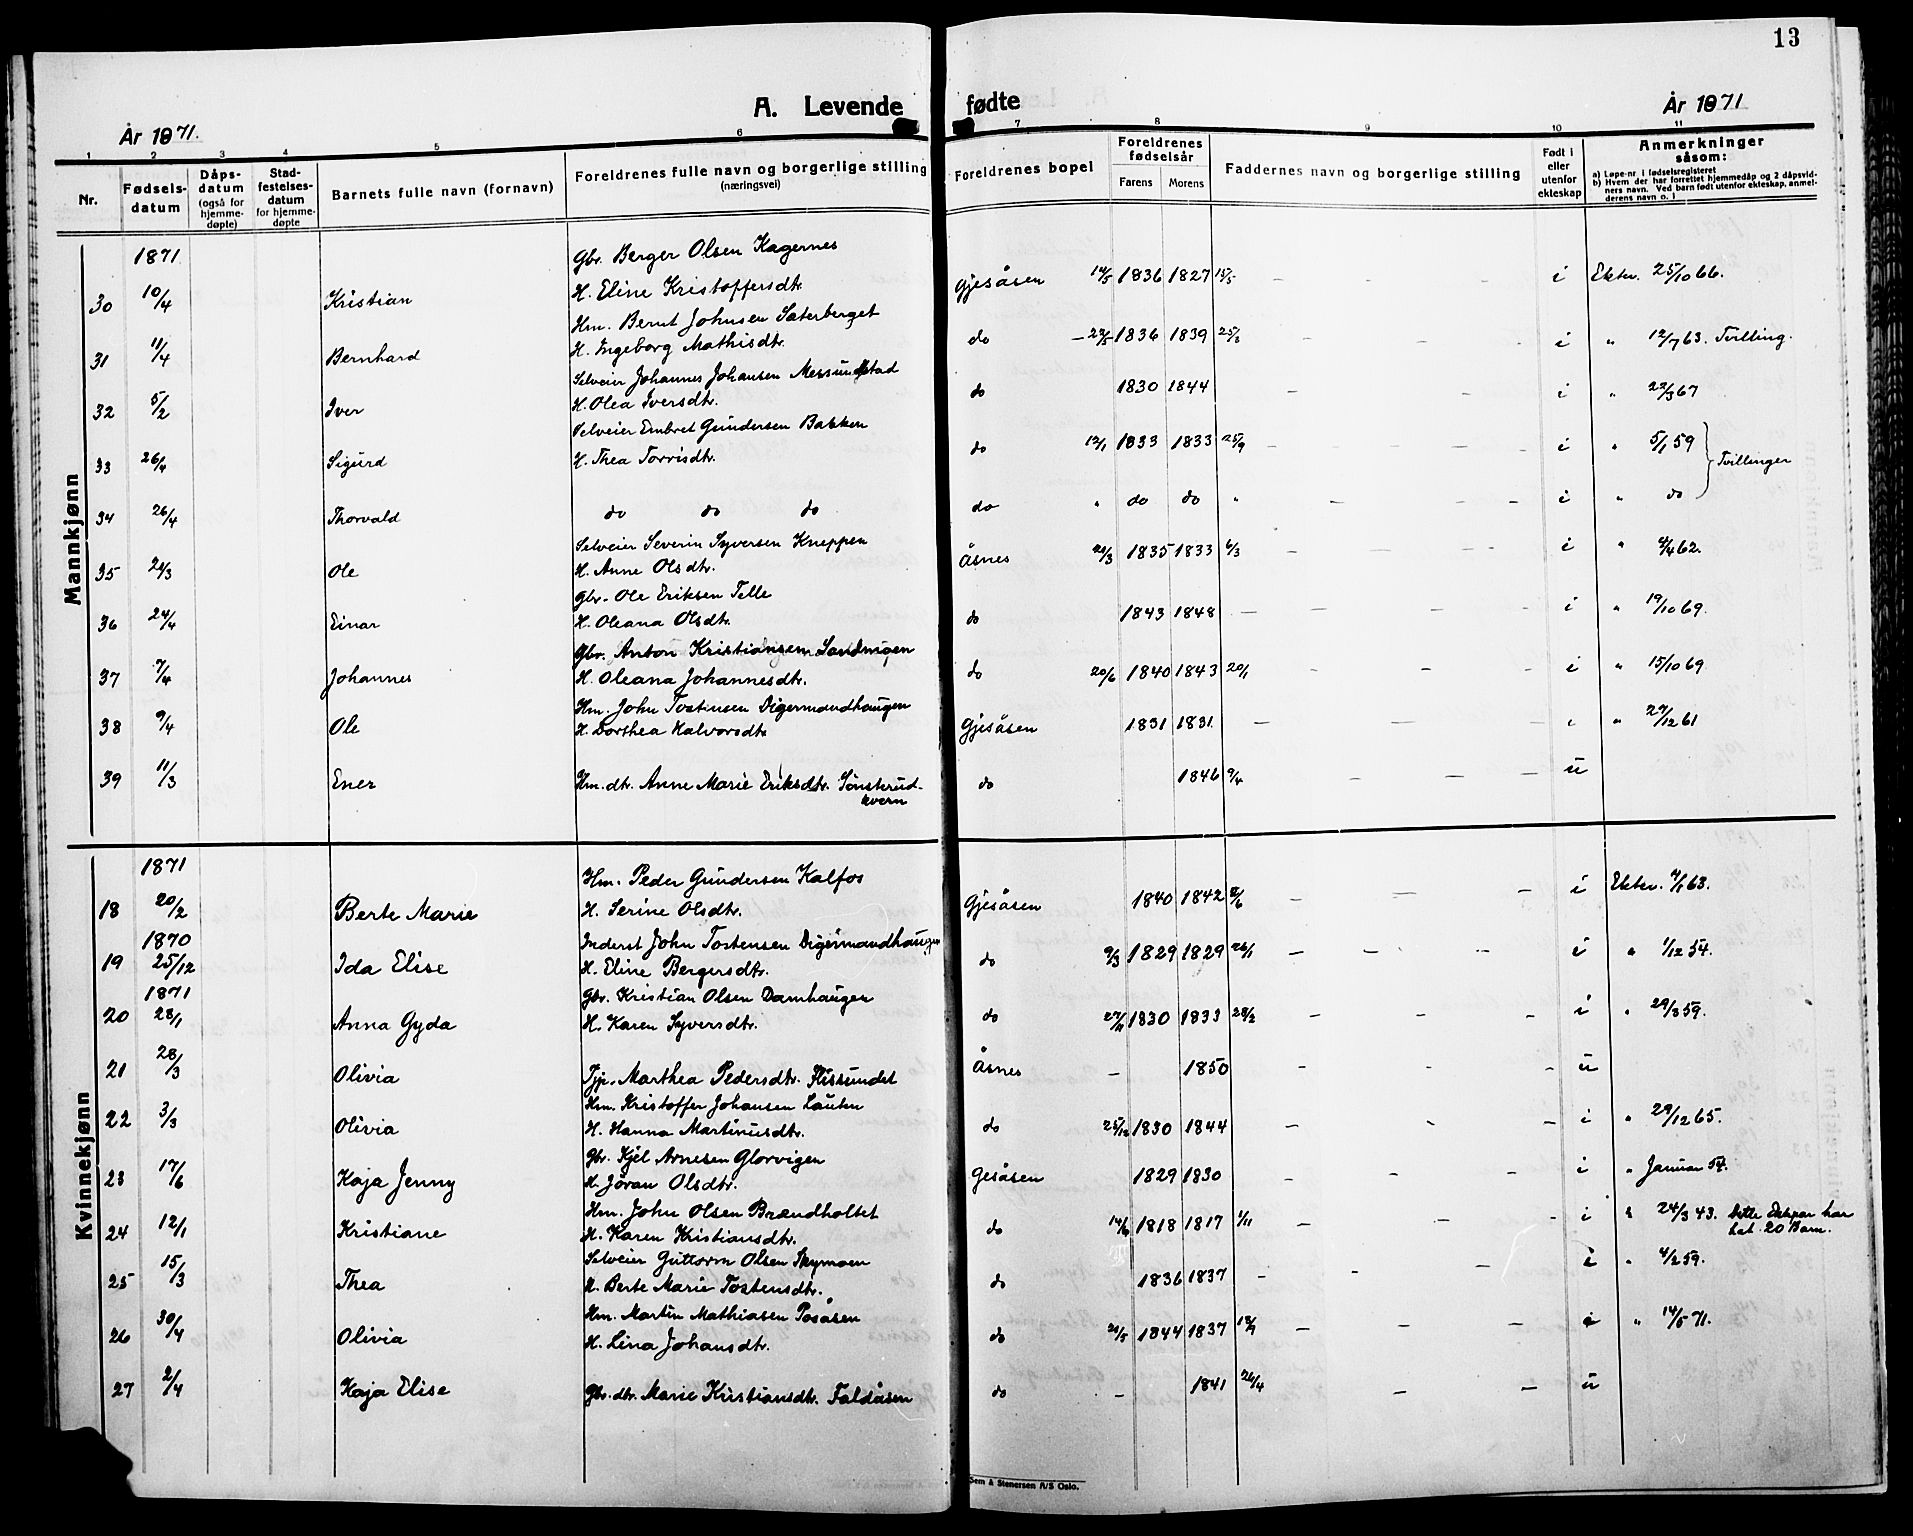 13
A. Levende fødte
År 1871.
År 1871
1 2 3 4 5 6 7 8 9 10 11
Nr. Fødselsdatum Dåpsdatum (også for hjemmedøpte) Stadfestelsesdatum for hjemmedøpte Barnets fulle navn (fornavn) Foreldrenes fulle navn og borgerlige stilling (næringsvei) Foreldrenes bopel Foreldrenes fødselsår Farens Morens Faddernes navn og borgerlige stilling Født i eller utenfor ekteskap Anmerkninger såsom:
a) Løpe-nr i fødselsregisteret
b) Hvem der har forrettet hjemmedåp og 2 dåpsvidners navn. Ved barn født utenfor ekteskap, anmelderens navn o. l
Mannkjønn
1871 Gbr. Berger Olsen Kagernes
30 10/4 Kristian H. Eline Kristoffersdtr. Gjesåsen 14/5 1836 1827 15/5 - - - i Ektev. 25/10 66.
Hm. Bernt Johnsen Sæterberget
31 11/4 Bernhard H. Ingeborg Mathisdtr. do - 22/5 1836 1839 25/8 - - - i " 12/7 63. Tvilling.
Selveier Johannes Johansen Messundstad
32 5/2 Iver H. Olea Iversdtr. do 1830 1844 - - - i " 22/3 67
Selveier Embret Gundersen Bakken
33 26/4 Sigurd H. Thea Torrisdtr. do 12/1 1833 1833 25/9 - - - i " 5/1 59 Tvillinger
34 26/4 Thorvald do do do do " do do " - - - i " do
Selveier Severin Syversen Kneppen
35 2/3 Ole H. Anne Olsdtr. Åsnes 20/3 1835 1833 6/3 - - - i " 4/4 62.
Gbr. Ole Eriksen Telle
36 24/4 Einar H. Oleana Olsdtr. do 1843 1848 - - - - i " 19/10 69.
Gbr. Anton Kristiansen Sandmoen
37 7/4 Johannes H. Oleana Johannesdtr. do 20/6 1840 1843 20/1 - - - i " 15/10 69
Hm. John Tostensen Digermandhaugen
38 9/4 Ole H. Dorthea Halvorsdtr Gjesåsen 1831 1831. - - - i " 27/12 61
39 11/3 Ener Hm. dtr. Anne Marie Eriksdtr. Sønsterud-
kvern do 1846 9/4 - - - u
Kvinnekjønn
1871 Hm. Peder Gundersen Kalfos
18 20/2 Berte Marie H. Serine Olsdtr. Gjesåsen 1840 1842 2/6 - - - i Ektev. 4/1 63.
1870 Inderst John Tostensen Digermandhaugen
19 25/12 Ida Elise H. Eline Bergersdtr. do 9/3 1829 1829 26/1 - - - i " 1/12 54.
1871 Gbr. Kristian Olsen Damhaugen
20 23/1 Anna Gyda H. Karen Syversdtr. do 27/11 1830 1833 28/2 - - - i " 29/3 59.
21 28/3 Olivia Tjp. Marthea Pedersdtr. Flissundet Åsnes - 1850 - - - u
Hm. Kristoffer Johansen Lauten
22 3/3 Olivia H. Hanna Martinusdtr. do 25/12 1830 1844 - - - i " 29/12 65.
Gbr. Kjel Arnesen Glorvigen
23 17/6 Kaja Jenny H. Jøran Olsdtr. Gesåsen 1829 1830 - - - i " Januar 54.
Hm. John Olsen Brændholtet
24 12/1 Kristiane H. Karen Kristiansdtr. do 14/6 1818 1817 1/11 - - - i " 24/3 43. Dette Ektepar har
hat 20 Barn.
Selveier Guttorm Olsen Skymoen
25 15/3 Thea H. Berte Marie Tostensdtr. do 1836 1837 - - - i " 4/2 59.
Hm. Martin Mathiasen Posåsen
26 30/4 Olivia H. Lina Johansdtr. do 21/5 1844 1837 18/9 - - - i " 14/5 71.
27 2/4 Kaja Elise Gbr. dtr. Marie Kristiansdtr. Faldåsen do - 1841 26/4 - - u
Sem & Stenersen A/S Oslo.